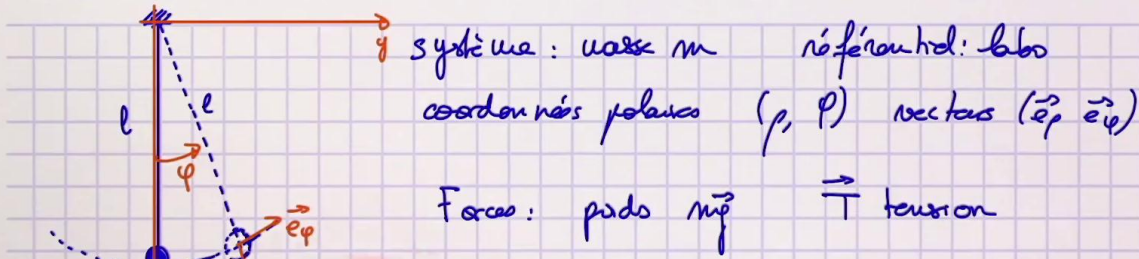 y
système : masse m référentiel : labo
l l coordonnées polaires (ρ, φ) vecteurs (e⃗ρ e⃗φ)
φ
Forces : poids mg⃗ T⃗ tension
e⃗φ